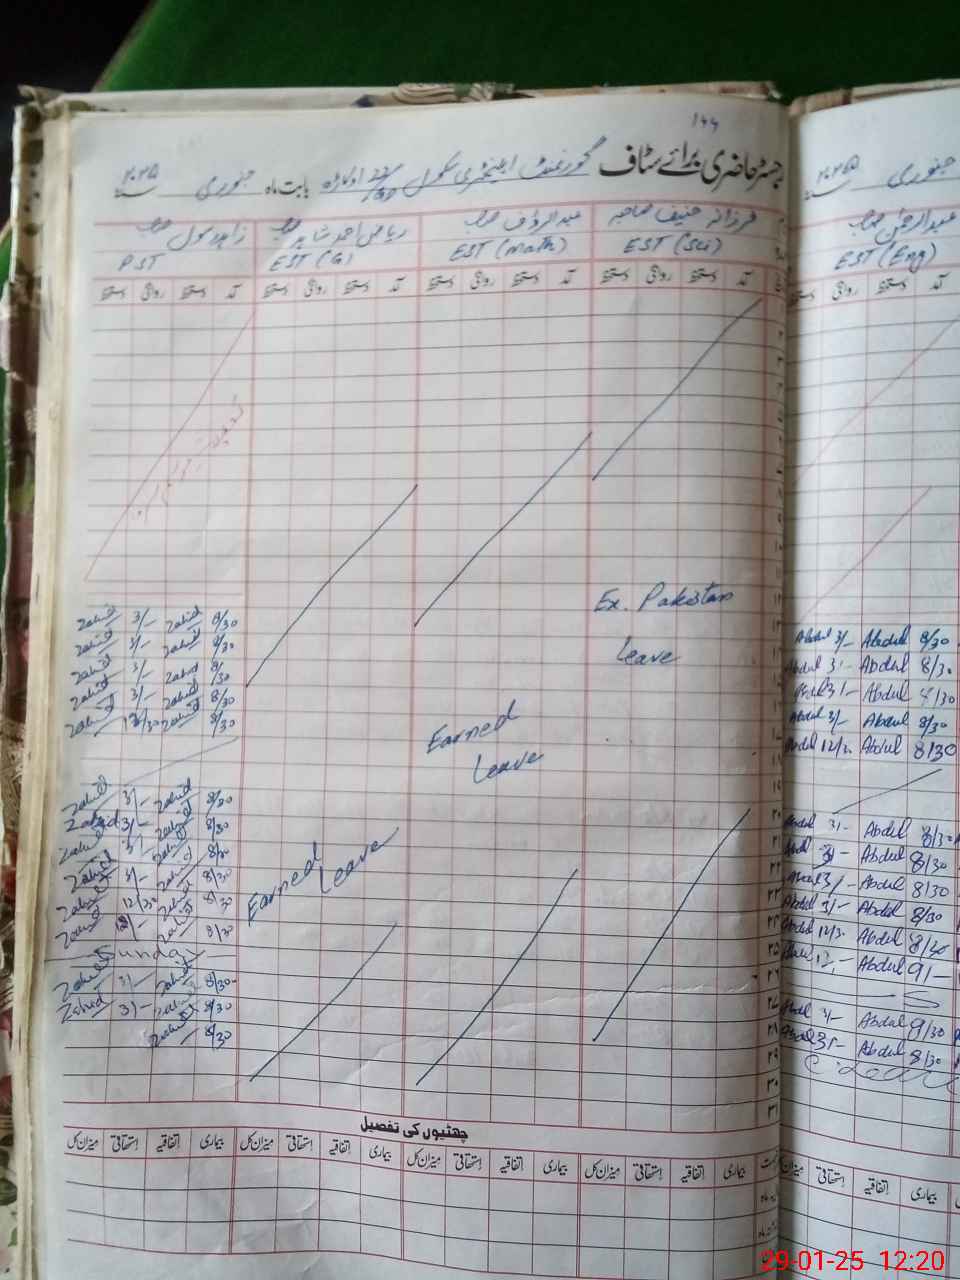 ۱۴۴
رجسٹر حاضری برائے سٹاف گورنمنٹ ایلیمنٹری سکول اوکاڑہ بابت ماہ جنوری سنہ ۲۰۲۵
جنوری سنہ ۲۰۲۵
فرزانہ حنیف صاحبہ
EST (Sci)
عبدالرؤف صاحب
EST (Math)
ریاض احمد شاہد صاحب
EST (G)
زاہد رسول صاحب
PST
عبدالرحمٰن صاحب
EST (Eng)
آمد دستخط روانگی دستخط آمد دستخط روانگی دستخط آمد دستخط روانگی دستخط آمد دستخط روانگی دستخط
آمد دستخط روانگی دستخط
Ex. Pakistan
Leave
Earned
Leave
Earned
Leave
Zahid 3/- Zahid 8/30
Zahid 3/- Zahid 8/30
Zahid 3/- Zahid 8/30
Zahid 3/- Zahid 8/30
Zahid 12/30 Zahid 8/30
Zahid 3/- Zahid 8/30
Zahid 3/- Zahid 8/30
Zahid 3/- Zahid 8/30
Zahid 3/- Zahid 8/30
Zahid 12/30 Zahid 8/30
Zahid Zahid 8/30
Sunday
Zahid 3/- Zahid 8/30
Zahid 3/- Zahid 8/30
Zahid 8/30
Abdul 3/- Abdul 8/30
Abdul 3/- Abdul 8/30
Abdul 3/- Abdul 8/30
Abdul 3/- Abdul 8/30
Abdul 12/30 Abdul 8/30
Abdul 3/- Abdul 8/30
Abdul 3/- Abdul 8/30
Abdul 3/- Abdul 8/30
Abdul 3/- Abdul 8/30
Abdul 12/30 Abdul 8/30
Abdul Abdul 9/-
Abdul 3/- Abdul 9/30
Abdul 3/- Abdul 8/30
چھٹیوں کی تفصیل
بیماری اتفاقیہ استحقاقی میزان کل بیماری اتفاقیہ استحقاقی میزان کل بیماری اتفاقیہ استحقاقی میزان کل بیماری اتفاقیہ استحقاقی میزان کل
بیماری اتفاقیہ استحقاقی میزان
29-01-25 12:20